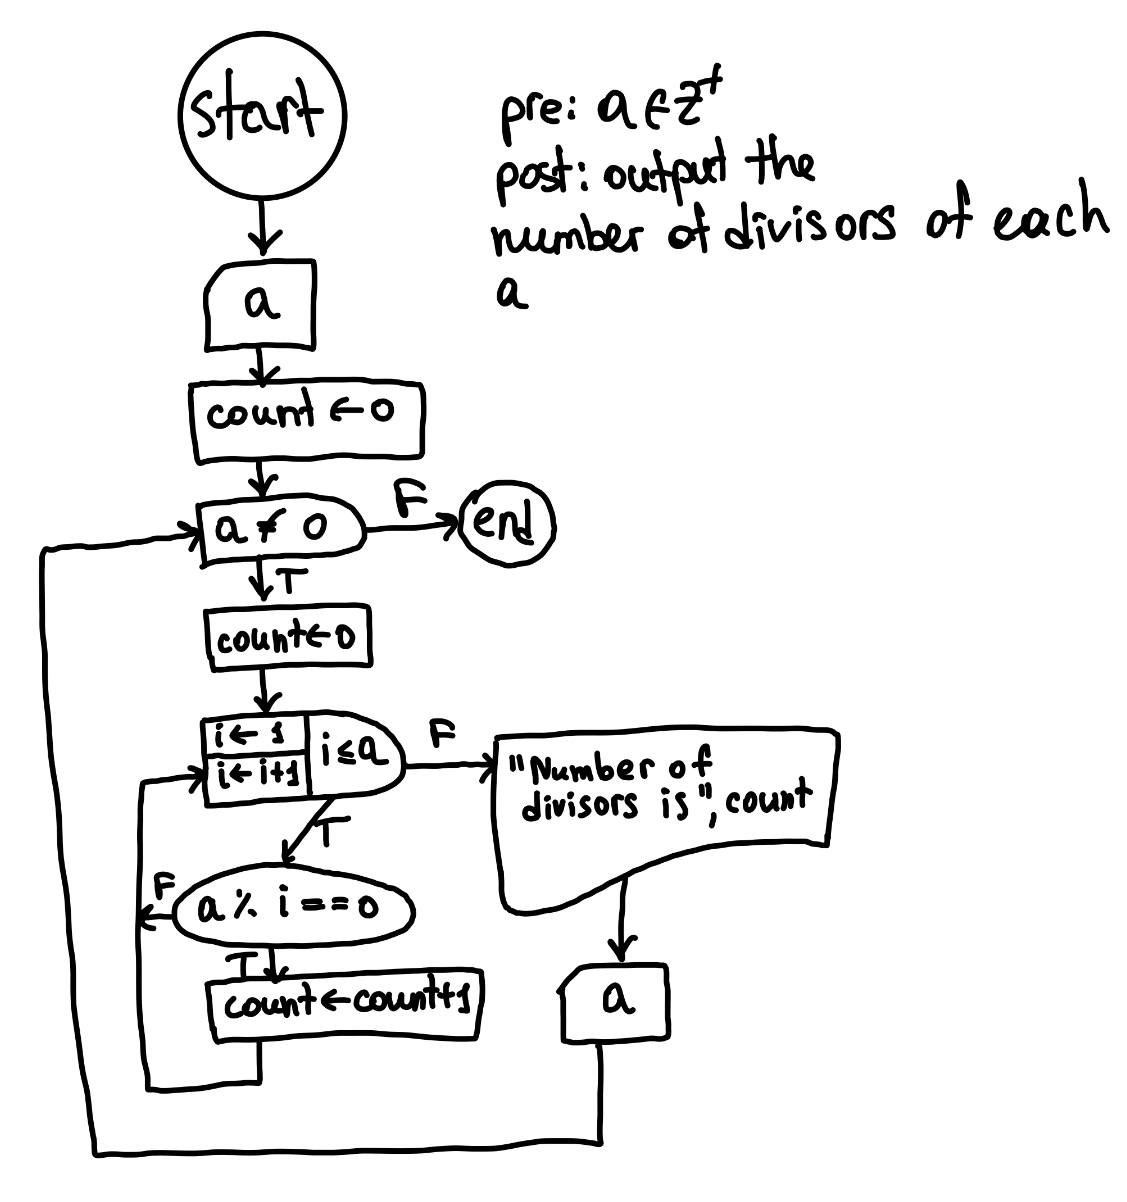 start
pre: a ∈ Z⁺
post: output the
number of divisors of each
a
a
count ← 0
a ≠ 0
F
end
T
count ← 0
i ← 1
i ← i+1
i ≤ a
F
"Number of
divisors is", count
T
F
a % i == 0
T
count ← count+1
a